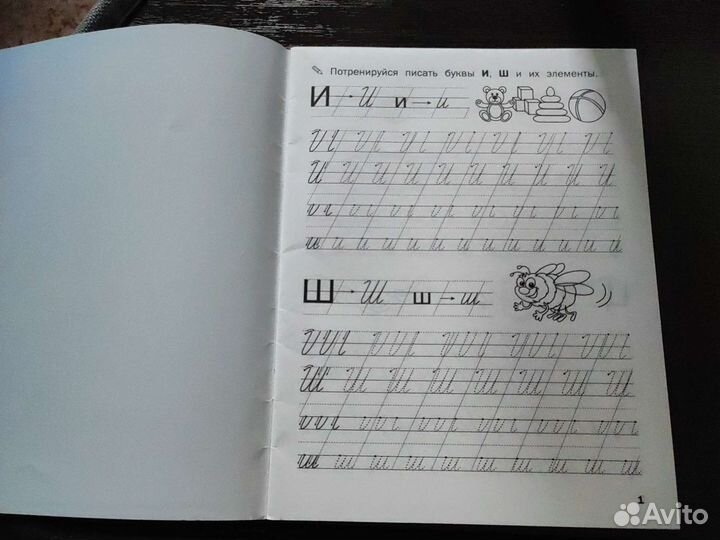 ✎ Потренируйся писать буквы И, Ш и их элементы.
И → И и → и
И И И И И И И И И
и и и и и и и и и и и
Ш → Ш ш → ш
Ш Ш Ш Ш Ш Ш Ш Ш
ш ш ш ш ш ш ш ш ш
1
Avito